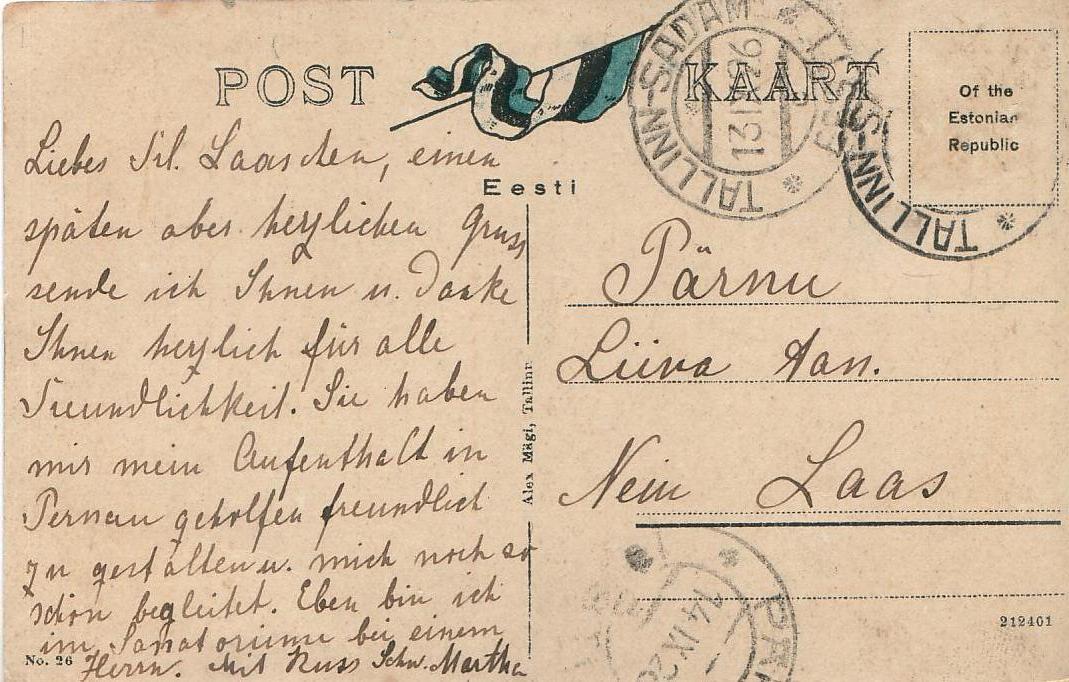 POST KAART
Eesti
Of the
Estonian
Republic
TALLINN-SADAM
13 IX 26
TALLINN-
Liebes Frl. Laaschen, einen
späten aber herzlichen Gruss
sende ich Ihnen u. Danke
Ihnen herzlich für alle
Freundlichkeit. Sie haben
mir mein Aufenthalt in
Pernau geholfen freundlich
zu gestalten u. mich noch so
schön begleitet. Eben bin ich
im Sanatoriume bei einem
Herrn. Mit Kuss Schw. Martha
Pärnu
Liiva tän.
Nein Laas
Alex Mägi, Tallinn
14 IX 26
212401
No. 26